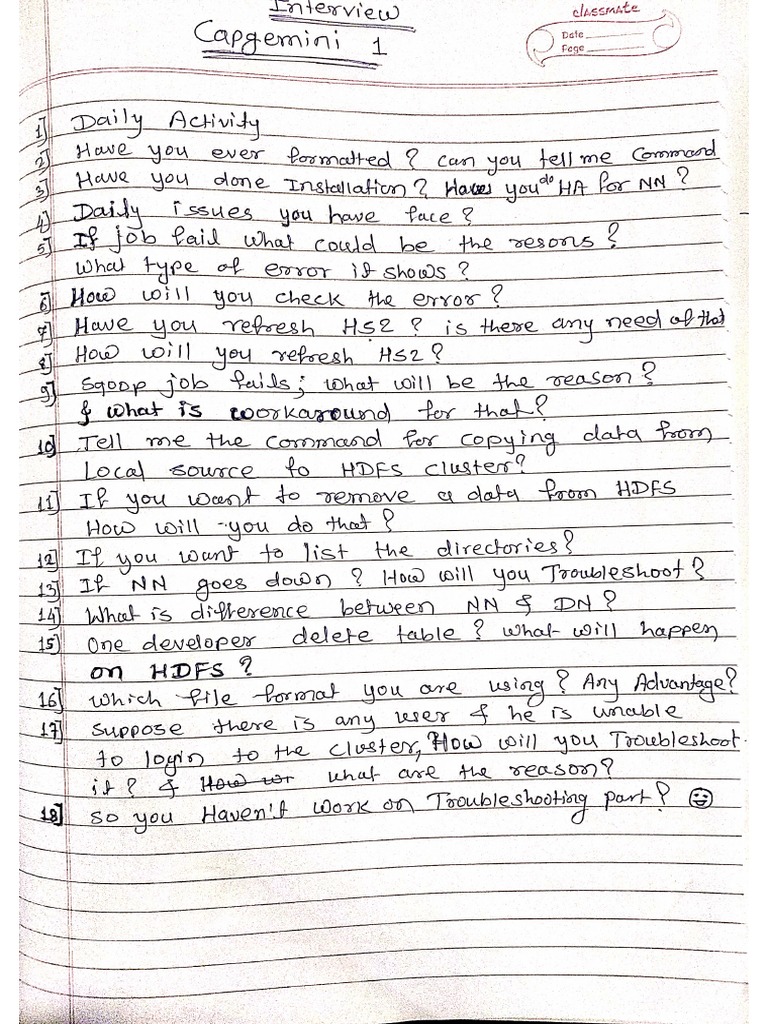 Interview
Capgemini 1
classmate
Date
Page
1] Daily Activity
2] Have you ever formatted? Can you tell me Command
3] Have you done Installation? Have you do HA for NN?
4] Daily issues you have face?
5] If job fail what could be the resons?
What type of error it shows?
6] How will you check the error?
7] Have you refresh HS2? is there any need of that
8] How will you refresh HS2?
9] Sqoop job fails; what will be the reason?
& what is workaround for that?
10] Tell me the command for copying data from
Local source to HDFS cluster?
11] If you want to remove a data from HDFS
How will you do that?
12] If you want to list the directories?
13] If NN goes down? How will you Troubleshoot?
14] What is difference between NN & DN?
15] One developer delete table? what will happen
on HDFS?
16] which file format you are using? Any Advantage?
17] suppose there is any user & he is unable
to login to the cluster, How will you Troubleshoot.
it? & How wr what are the reason?
18] so you Haven't work on Troubleshooting part? ☺